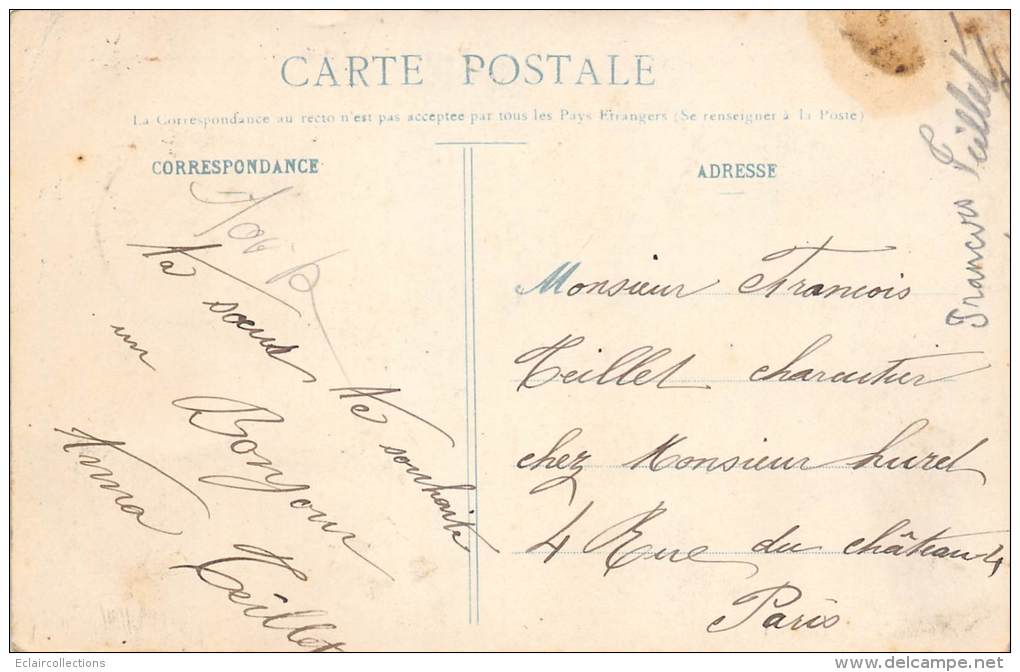 CARTE POSTALE
La Correspondance au recto n'est pas acceptée par tous les Pays Etrangers (Se renseigner à la Poste)
CORRESPONDANCE
Ta sœur te souhaite
un Bonjour
Anna Teillet
ADRESSE
Monsieur Francois
Teillet charcutier
chez Monsieur huret
4 Rue du château 4
Paris
Francois Teillet
Eclaircollections
www.delcampe.net